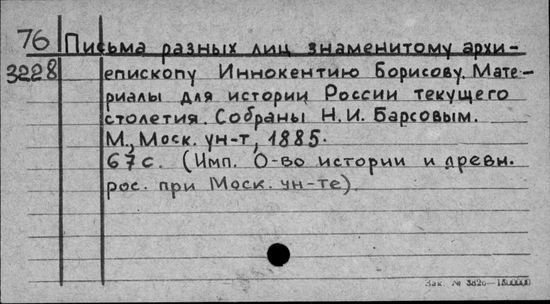 76 Письма разных лиц знаменитому архи-
3228 епископу Иннокентию Борисову. Мате-
риалы для истории России текущего
столетия. Собраны Н.И. Барсовым.
М., Моск. ун-т, 1885.
67 с. (Имп. О-во истории и древн.
рос. при Моск. ун-те).
Зак. №